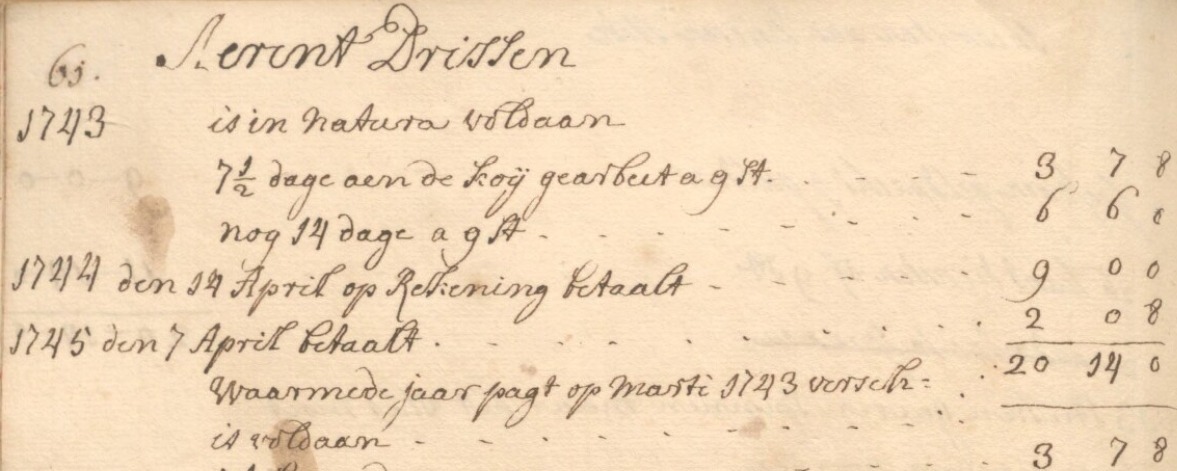 61. Aerent Drissen
1743 is in natura voldaan
7 1/2 dage aen de koij gearbeit a 9 st. 3 7 8
nog 14 dage a 9 st 6 6 0
1744 den 14 April op Rekening betaalt 9 0 0
1745 den 7 April betaalt 2 0 8
20 14 0
Waarmede jaar pagt op Marti 1743 versch:
is voldaan
3 7 8